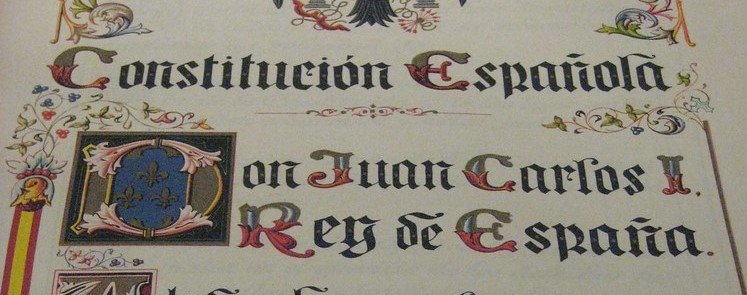 Constitución Española
Don Juan Carlos I.
Rey de España.